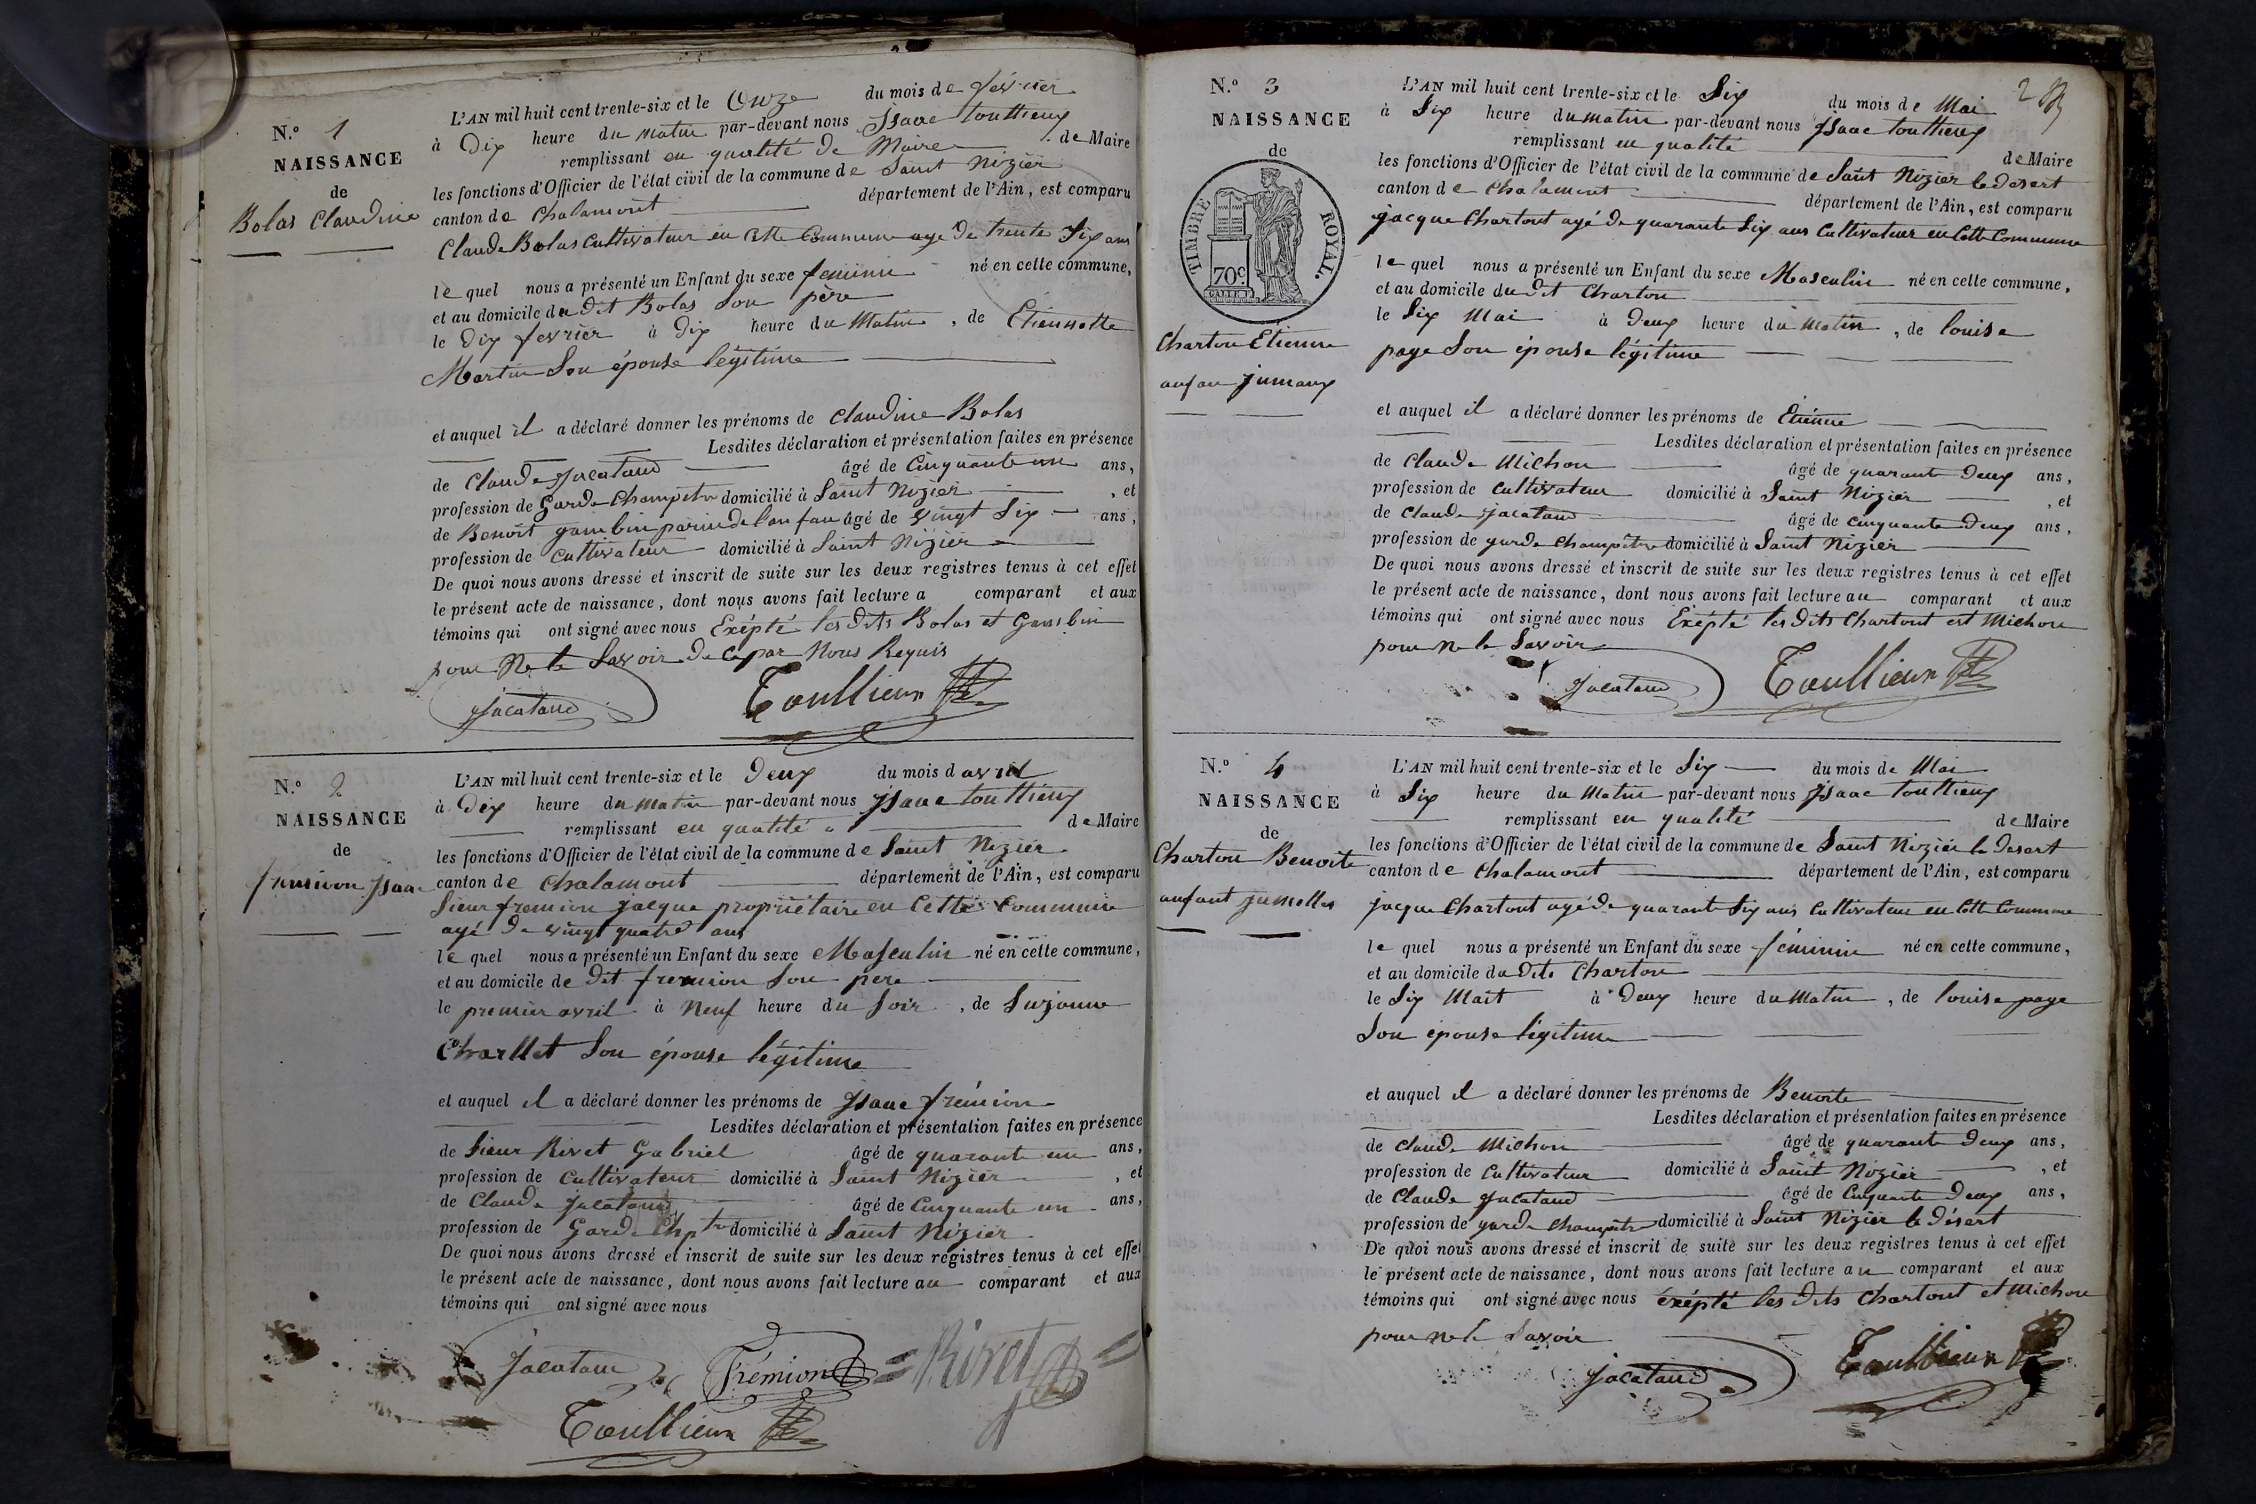 N.º 1
NAISSANCE
de
Bolas Claudine
L'AN mil huit cent trente-six et le Onze du mois de février
à Dix heure du matin par-devant nous Jsaac touttieux
remplissant en qualité de Maire de Maire
les fonctions d'Officier de l'état civil de la commune de Saint Nizier
canton de Chalamont département de l'Ain, est comparu
Claude Bolas Cultivateur en Cette Commune age De trente Six ans
le quel nous a présenté un Enfant du sexe feminin né en cette commune,
et au domicile du Dit Bolas Son père
le Dix fevrier à Dix heure du Matin, de Etiennette
Martin Son épouse légitime
et auquel il a déclaré donner les prénoms de Claudine Bolas
Lesdites déclaration et présentation faites en présence
de Claude Jacataud âgé de Cinquante un ans,
profession de Garde Champetre domicilié à Saint Nizier, et
de Benoit gambin parin de l'anfan âgé de vingt Six ans,
profession de Cultivateur domicilié à Saint Nizier
De quoi nous avons dressé et inscrit de suite sur les deux registres tenus à cet effet
le présent acte de naissance, dont nous avons fait lecture a comparant et aux
témoins qui ont signé avec nous Exépté les dits Bolas et Gambin
pour Ne le Savoir De Ce par Nous Requis
Jacataud Toullieux
N.º 2
NAISSANCE
de
fremion Jsaac
L'AN mil huit cent trente-six et le Deux du mois d avril
à Dix heure du matin par-devant nous Jsaac touttieux
remplissant en qualité de Maire
les fonctions d'Officier de l'état civil de la commune de Saint Nizier
canton de Chalamont département de l'Ain, est comparu
Sieur fremion jacque propriétaire en Cette Commune
agé De vingt quatre ans
le quel nous a présenté un Enfant du sexe Masculin né en cette commune,
et au domicile de Dit fremion Son pere
le premier avril à Neuf heure du Soir, de Suzanne
Charllet Son épouse légitime
et auquel il a déclaré donner les prénoms de Jsaac frémion
Lesdites déclaration et présentation faites en présence
de Sieur Rivet Gabriel âgé de quarante un ans,
profession de Cultivateur domicilié à Saint Nizier, et
de Claude Jacataud âgé de Cinquante un ans,
profession de Garde Chptre domicilié à Saint Nizier
De quoi nous avons dressé et inscrit de suite sur les deux registres tenus à cet effet
le présent acte de naissance, dont nous avons fait lecture au comparant et aux
témoins qui ont signé avec nous
Jacataud Frémion Rivet
Toullieux
2
N.º 3
NAISSANCE
de
TIMBRE ROYAL.
70c
Charton Etienne
anfan jumaux
L'AN mil huit cent trente-six et le Six du mois de Mai
à Six heure du matin par-devant nous Jsaac touttieux
remplissant en qualité de Maire
les fonctions d'Officier de l'état civil de la commune de Saint Nizier le desert
canton de Chalamont département de l'Ain, est comparu
jacque Chartout agé De quarante Six ans Cultivateur en Cette Commune
le quel nous a présenté un Enfant du sexe Masculin né en cette commune,
et au domicile du Dit Charton
le Six Mai à Deux heure du matin, de louise
page Son épouse légitime
et auquel il a déclaré donner les prénoms de Etienne
Lesdites déclaration et présentation faites en présence
de Claude Michon âgé de quarante Deux ans,
profession de Cultivateur domicilié à Saint Nizier, et
de Claude Jacataud âgé de Cinquante Deux ans,
profession de garde Champêtre domicilié à Saint Nizier
De quoi nous avons dressé et inscrit de suite sur les deux registres tenus à cet effet
le présent acte de naissance, dont nous avons fait lecture au comparant et aux
témoins qui ont signé avec nous Exépté les Dits Chartout est Michon
pour ne le Savoir
Jacataud Toullieux
N.º 4
NAISSANCE
de
Charton Benoite
anfant jumelles
L'AN mil huit cent trente-six et le Six du mois de Mai
à Six heure du Matin par-devant nous Jsaac touttieux
remplissant en qualité de Maire
les fonctions d'Officier de l'état civil de la commune de Saint Nizier le desert
canton de Chalamont département de l'Ain, est comparu
jacque Chartout agé De quarante Six ans Cultivateur en Cette Commune
le quel nous a présenté un Enfant du sexe féminin né en cette commune,
et au domicile du Dits Charton
le Six Mait à Deux heure du Matin, de louise page
Son épouse légitime
et auquel il a déclaré donner les prénoms de Benoite
Lesdites déclaration et présentation faites en présence
de Claude Michon âgé de quarante Deux ans,
profession de Cultivateur domicilié à Saint Nizier, et
de Claude Jacataud âgé de Cinquante Deux ans,
profession de garde Champêtre domicilié à Saint Nizier le Désert
De quoi nous avons dressé et inscrit de suite sur les deux registres tenus à cet effet
le présent acte de naissance, dont nous avons fait lecture au comparant et aux
témoins qui ont signé avec nous éxépté les Dits Chartout et Michon
pour ne le Savoir
Jacataud Toullieux